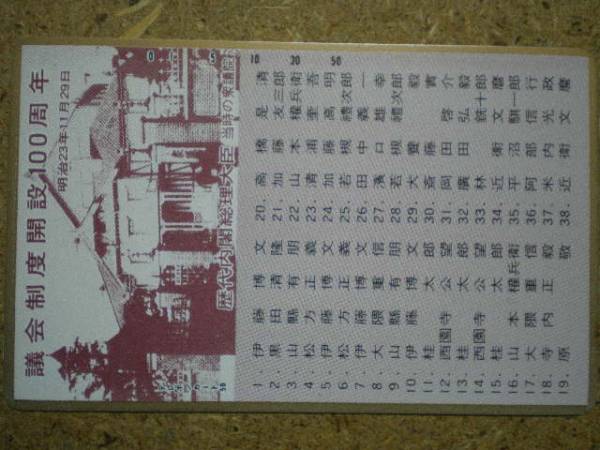 議会制度開設100周年
明治23年11月29日
歴代内閣総理大臣 当時の衆議院
テレホンカード 50
0 5 10 30 50
1. 伊藤博文
2. 黒田清隆
3. 山縣有朋
4. 松方正義
5. 伊藤博文
6. 松方正義
7. 伊藤博文
8. 大隈重信
9. 山縣有朋
10. 伊藤博文
11. 桂太郎
12. 西園寺公望
13. 桂太郎
14. 西園寺公望
15. 桂太郎
16. 山本權兵衛
17. 大隈重信
18. 寺内正毅
19. 原敬
20. 高橋是清
21. 加藤友三郎
22. 山本權兵衛
23. 清浦奎吾
24. 加藤高明
25. 若槻禮次郎
26. 田中義一
27. 濱口雄幸
28. 若槻禮次郎
29. 犬養毅
30. 斎藤實
31. 岡田啓介
32. 廣田弘毅
33. 林銑十郎
34. 近衛文麿
35. 平沼騏一郎
36. 阿部信行
37. 米内光政
38. 近衛文麿